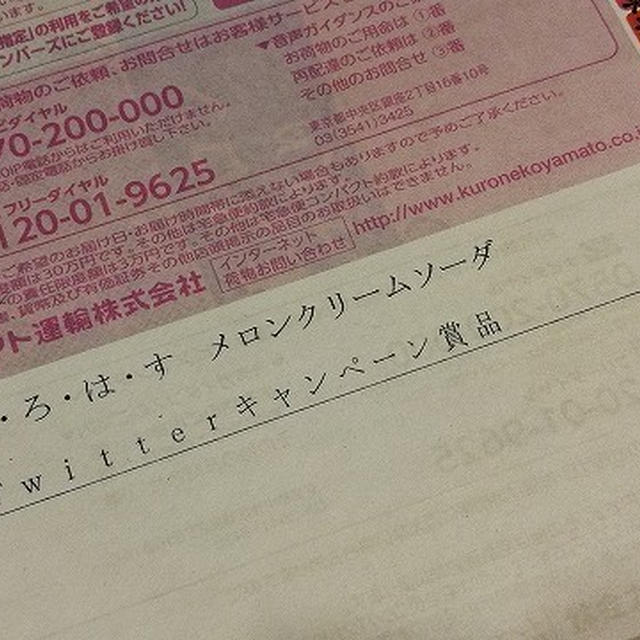 います。
指定」の利用をご希望のお
ンバーズにご登録ください!
荷物のご依頼、お問合せはお客様サービス
ビダイヤル
70-200-000
IP電話からはご利用いただけません。
話・固定電話からお掛け願います。
フリーダイヤル
120-01-9625
▼音声ガイダンスのご案
お荷物のご用命は ①番
再配達のご依頼は ②番
その他のお問合せ ③番
東京都中央区銀座2丁目16番10号
03(3541)3425
ご希望のお届け日・お届け時間帯に添えない場合もありますので予めご了承ください。
度額は30万円です。その他は宅急便約款によります。
の責任限度額は3万円です。その他は宅急便コンパクト約款によります。
貨幣及び有価証券その他店頭掲示の品目のお取扱いはできません。
ト運輸株式会社
インターネット
荷物お問い合わせ
http://www.kuronekoyamato.co.
・ろ・は・す メロンクリームソーダ
Twitterキャンペーン賞品